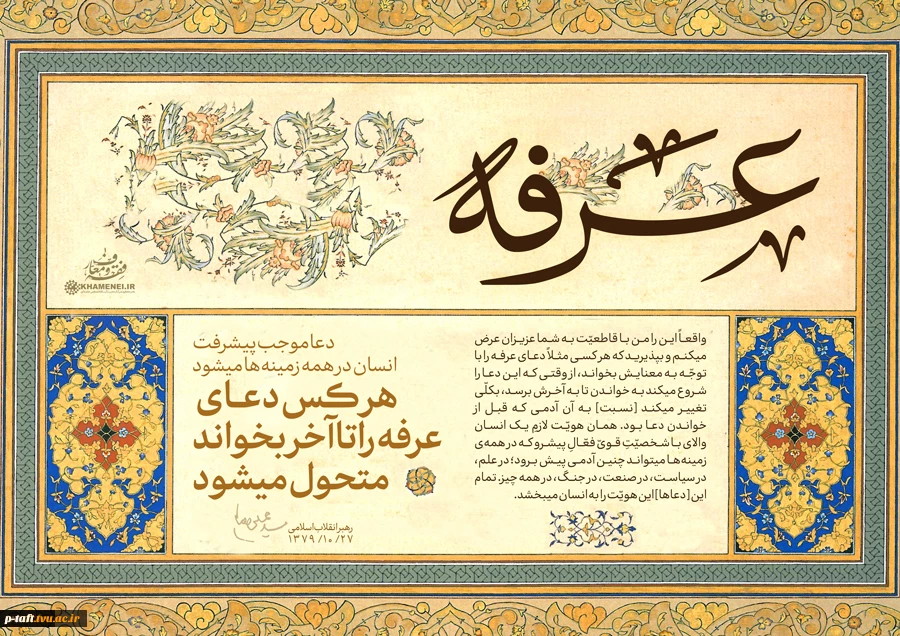 عرفه
فقه و معارف
KHAMENEI.IR
واقعاً این را من با قاطعیّت به شما عزیزان عرض
میکنم و بپذیرید که هر کسی مثلاً دعای عرفه را با
توجّه به معنایش بخواند، از وقتی که این دعا را
شروع میکند به خواندن تا به آخرش برسد، بکلّی
تغییر میکند [نسبت] به آن آدمی که قبل از
خواندن دعا بود. همان هویّت لازمِ یک انسان
والای با شخصیّتِ قویّ فعّالِ پیشرو که در همه‌ی
زمینه‌ها میتواند چنین آدمی پیش برود؛ در علم،
در سیاست، در صنعت، در جنگ، در همه چیز. تمام
این [دعاها] این هویّت را به انسان میبخشد.
دعا موجب پیشرفت
انسان در همه زمینه‌ها میشود
هر کس دعـای
عرفه را تا آخر بخواند
متحول میشود
رهبر انقلاب اسلامی
۱۳۷۹/۱۰/۲۷
p-taft.tvu.ac.ir